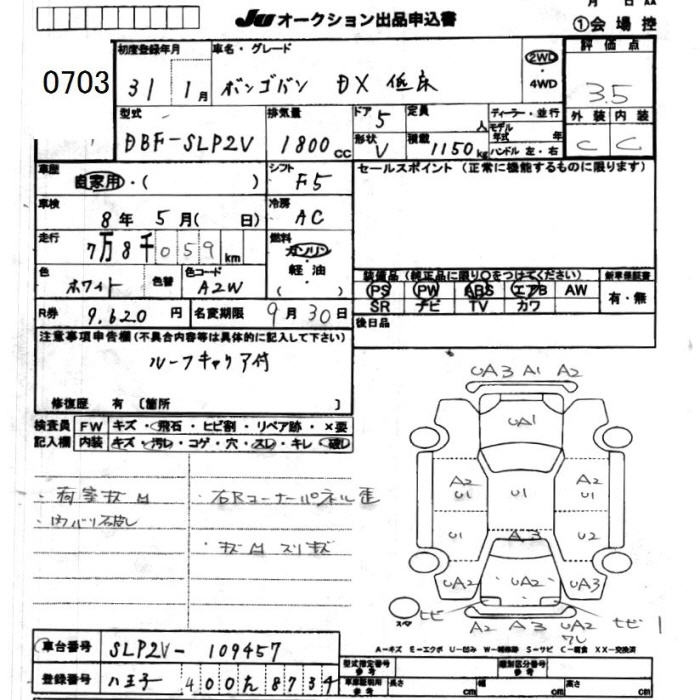 月 日 AA
JU オークション出品申込書
①会場控
0703
初度登録年月
車名・グレード
31 1月
ボンゴバン DX 低床
2WD
・
4WD
評価点
3.5
外装 内装
C C
型式
DBF-SLP2V
排気量
1800cc
ドア
5
形状
V
定員
人
積載
1150kg
ディーラー・並行
モデル年式 年
ハンドル 左・右
車歴
自家用・( )
シフト
F5
セールスポイント(正常に機能するものに限ります)
車検
8年5月( 日)
冷房
AC
走行
7万8千059km
燃料
ガソリン
軽油
( )
色
ホワイト
色替
色コード
A2W
装備品(純正品に限り○をつけてください)
新車保証書
PS PW ABS エアB AW
SR ナビ TV カワ
有・無
R券
9,620円
名変期限
9月30日
後日品
注意事項申告欄(不具合内容等は具体的に記入して下さい)
ルーフキャリア付
修復歴 有 [箇所 ]
検査員記入欄
FW キズ・飛石・ヒビ割・リペア跡・×要
内装 キズ・汚れ・コゲ・穴・スレ・キレ・破レ
・荷室キズ凹
・内バリ破レ
・右Rコーナーパネル歪
・キズ凹スリキズ
UA3 A1 A2
UA1
A2
U1
U1
A2
U1
U1
A3
U2
UA2
UA2
UA3
スペア
ヒビ
A2 A3 UA2
ワレ
ヒビ1
A=キズ E=エクボ U=凹み W=補修跡 S=サビ C=腐食 XX=交換済
車台番号
SLP2V-109457
登録番号
八王子 400 た 8734
型式指定番号
参考
類別区分番号
参考
車庫証明用
参考
長さ cm
幅 cm
高さ cm